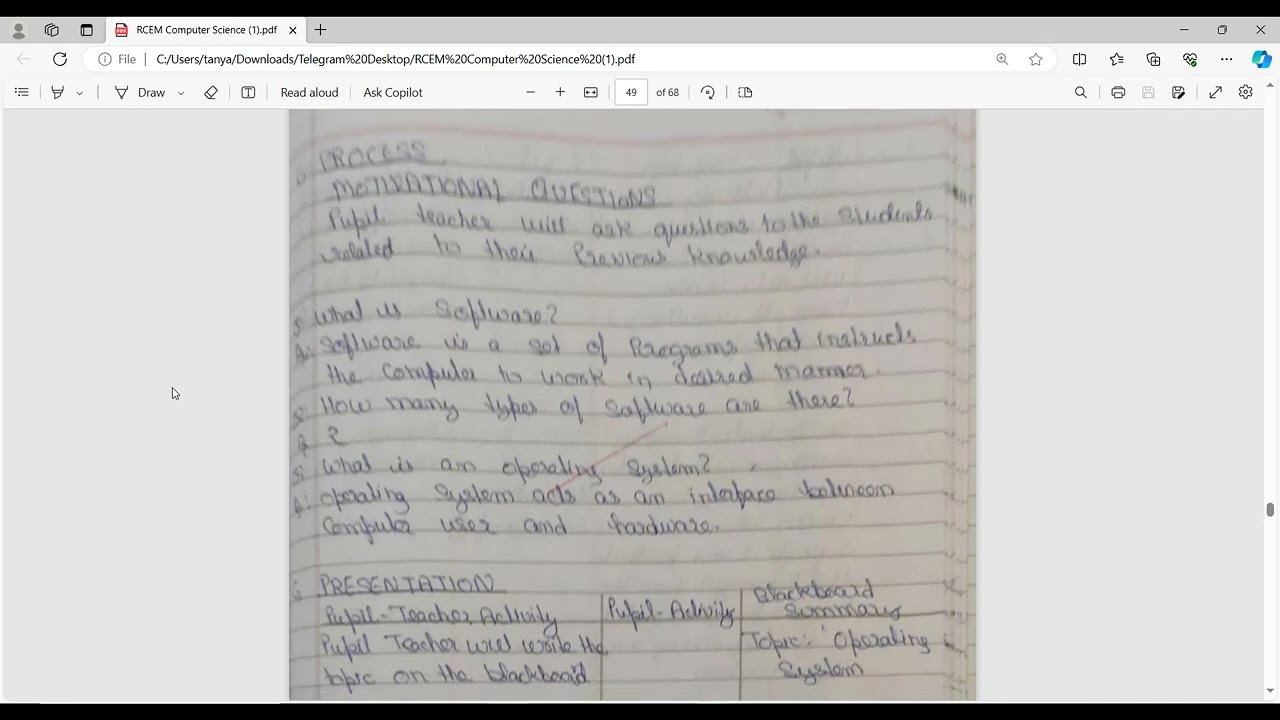 RCEM Computer Science (1).pdf
File C:/Users/tanya/Downloads/Telegram%20Desktop/RCEM%20Computer%20Science%20(1).pdf
Draw Read aloud Ask Copilot 49 of 68
PROCESS
MOTIVATIONAL QUESTIONS
Pupil teacher will ask questions to the students
related to their Previous knowledge.
S: What is Software?
A: Software is a set of Programs that instructs
the computer to work in desired manner.
S: How many types of software are there?
A 2
S: What is an operating system?
A: Operating System acts as an interface between
Computer user and hardware.
PRESENTATION
Pupil-Teacher Activity Pupil-Activity Blackboard Summary
Pupil Teacher will write the Topic: "Operating
topic on the blackboard System